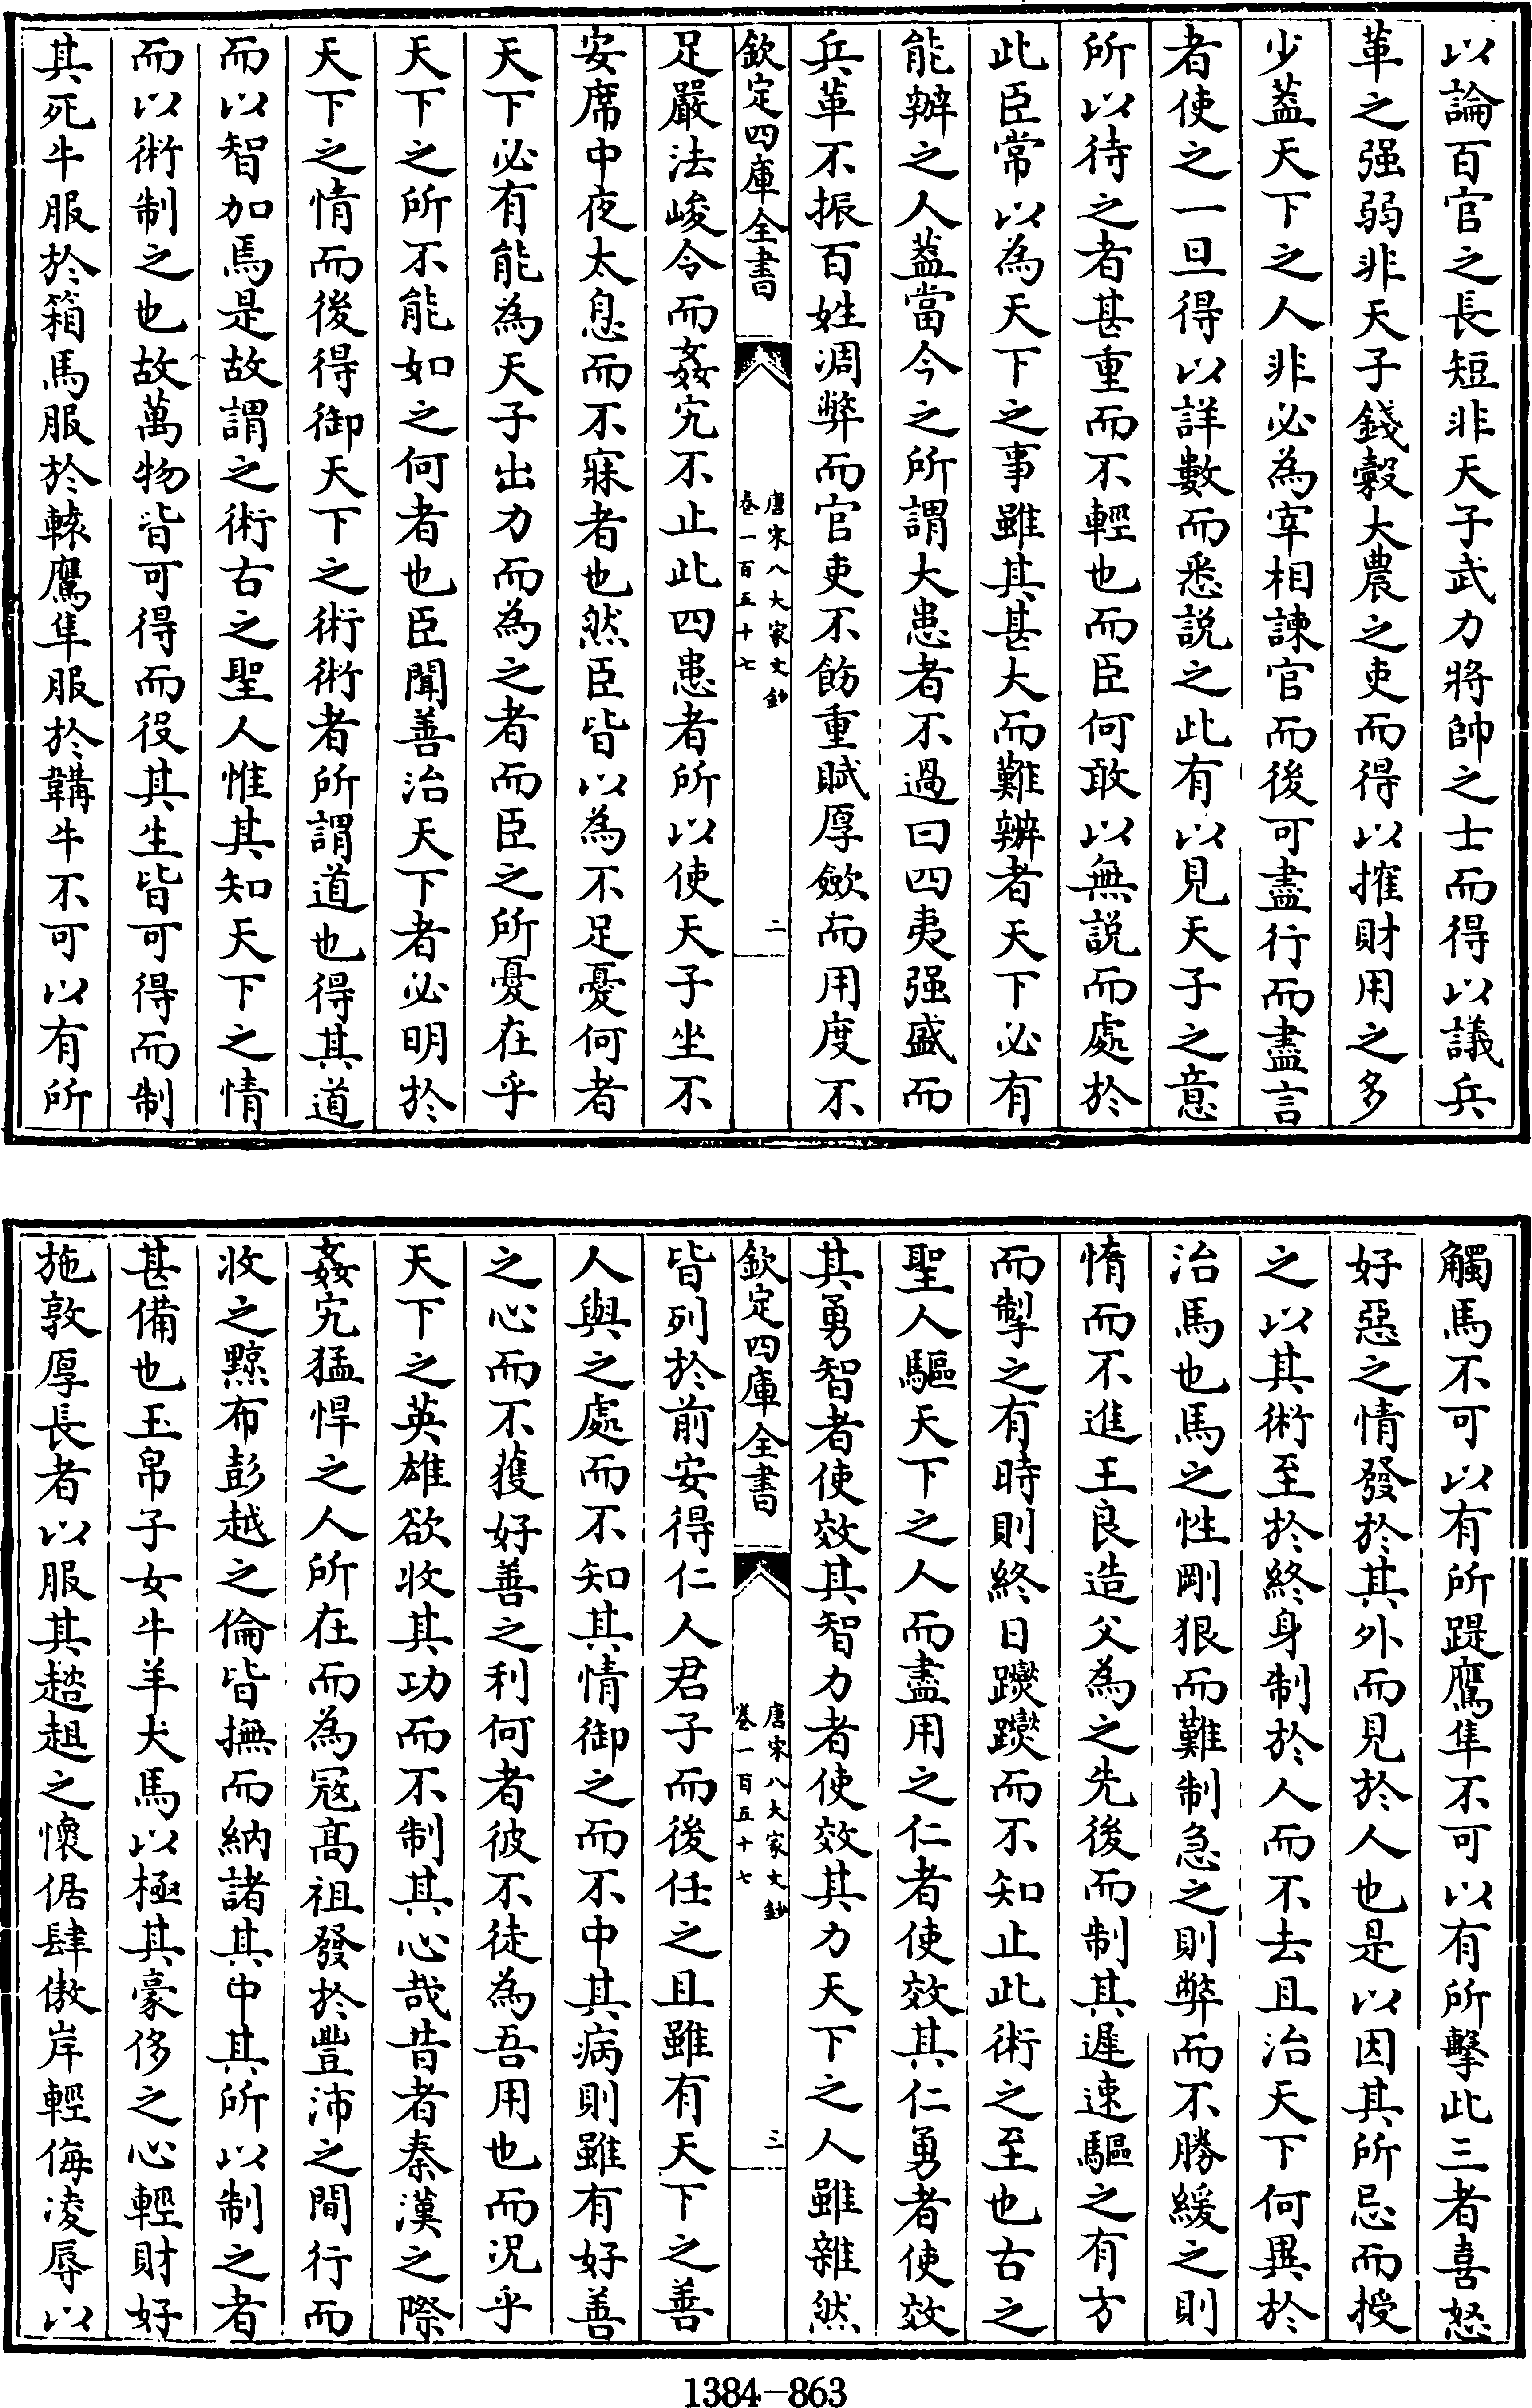 以論百官之長短非天子武力將帥之士而得以議兵
革之强弱非天子錢榖大農之吏而得以摧財用之多
少葢天下之人非必為宰相諫官而後可盡行而盡言
者使之一旦得以詳數而悉説之此有以見天子之意
所以待之者甚重而不輕也而臣何敢以無説而處於
此臣常以為天下之事雖其甚大而難辦者天下必有
能辦之人葢當今之所謂大患者不過曰四夷强盛而
兵革不振百姓凋弊而官吏不飭重賦厚斂而用度不
欽定四庫全書
唐宋八大家文鈔
卷一百五十七
二
足嚴法峻令而姦宄不止此四患者所以使天子坐不
安席中夜太息而不寐者也然臣皆以為不足憂何者
天下必有能為天子出力而為之者而臣之所憂在乎
天下之所不能如之何者也臣聞善治天下者必明於
天下之情而後得御天下之術術者所謂道也得其道
而以智加焉是故謂之術古之聖人惟其知天下之情
而以術制之也故萬物皆可得而役其生皆可得而制
其死牛服於箱馬服於轅鷹隼服於韝牛不可以有所
觸馬不可以有所踶鷹隼不可以有所擊此三者喜怒
好惡之情發於其外而見於人也是以因其所忌而授
之以其術至於終身制於人而不去且治天下何異於
治馬也馬之性剛狠而難制急之則弊而不勝緩之則
惰而不進王良造父為之先後而制其遲速驅之有方
而掣之有時則終日躞躞而不知止此術之至也古之
聖人驅天下之人而盡用之仁者使效其仁勇者使效
其勇智者使效其智力者使效其力天下之人雖雜然
欽定四庫全書
唐宋八大家文鈔
卷一百五十七
三
皆列於前安得仁人君子而後任之且雖有天下之善
人與之處而不知其情御之而不中其病則雖有好善
之心而不獲好善之利何者彼不徒為吾用也而况乎
天下之英雄欲收其功而不制其心哉昔者秦漢之際
姦宄猛悍之人所在而為冦髙祖發於豐沛之間行而
收之黥布彭越之倫皆撫而納諸其中其所以制之者
甚備也玉帛子女牛羊犬馬以極其豪侈之心輕財好
施敦厚長者以服其趦趄之懷倨肆傲岸輕侮凌辱以
1384-863